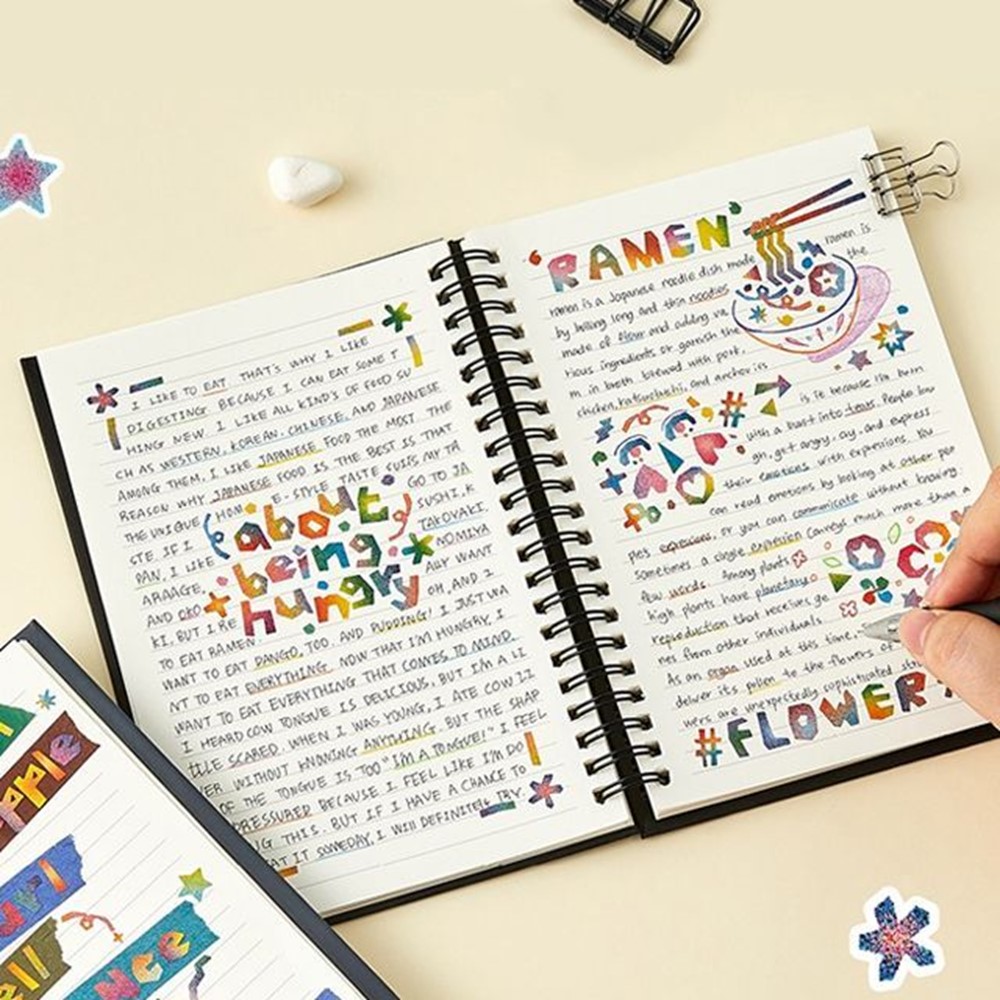 I LIKE TO EAT THAT'S WHY I LIKE
DIGESTING BECAUSE I CAN EAT SOME T
HING NEW. I LIKE ALL KIND'S OF FOOD SU
CH AS WESTERN, KOREAN, CHINESE, AND JAPANESE
AMONG THEM, I LIKE JAPANESE FOOD THE MOST
REASON WHY JAPANESE FOOD IS THE BEST IS THAT
THE UNIQUE (HOM E-STYLE TASTE SUITS MY TA
STE. IF I GO TO JA
PAN, I LIKE SUSHI, K
ARAAGE, TAKOYAKI,
AND OKO NOMIYA
KI, BUT I RE ALLY WANT
about
being
hungry
TO EAT RAMEN OH, AND I
WANT TO EAT DANGO, TOO. AND PUDDING! I JUST WA
NT TO EAT EVERYTHING NOW THAT I'M HUNGRY, I
WANT TO EAT EVERYTHING THAT COMES TO MIND.
I HEARD COW TONGUE IS DELICIOUS, BUT I'M A LI
TTLE SCARED. WHEN I WAS YOUNG, I ATE COW
ER WITHOUT KNOWING ANYTHING. BUT THE SHAP
OF THE TONGUE IS TOO "I'M A TONGUE!" I FEEL
PRESSURED BECAUSE I FEEL LIKE I'M DO
G THIS. BUT IF I HAVE A CHANCE TO
AT IT SOMEDAY, I WILL DEFINITELY TRY.
'RAMEN'
ramen is a Japanese noodle dish made ramen is
by boiling long and thin noodles the
made of flour and adding va
rious ingredients or garnish the
m in broth brewed with pork,
chicken, katsuobushi, and anchovies
#
is it because I've been
with a burst into tears. People lau
gh, get angry, cry, and express
their emotions with expressions. You
can read emotions by looking at other peo
ples expressions, or you can communicate without knowing.
sometimes a single expression conveys much more than a
few words. Among plants
high plants have planetary
reproduction that receives ge
nes from other individuals
As an organ used at this time,
deliver its pollen to the flowers of
wers are unexpectedly sophisticated
#FLOWER